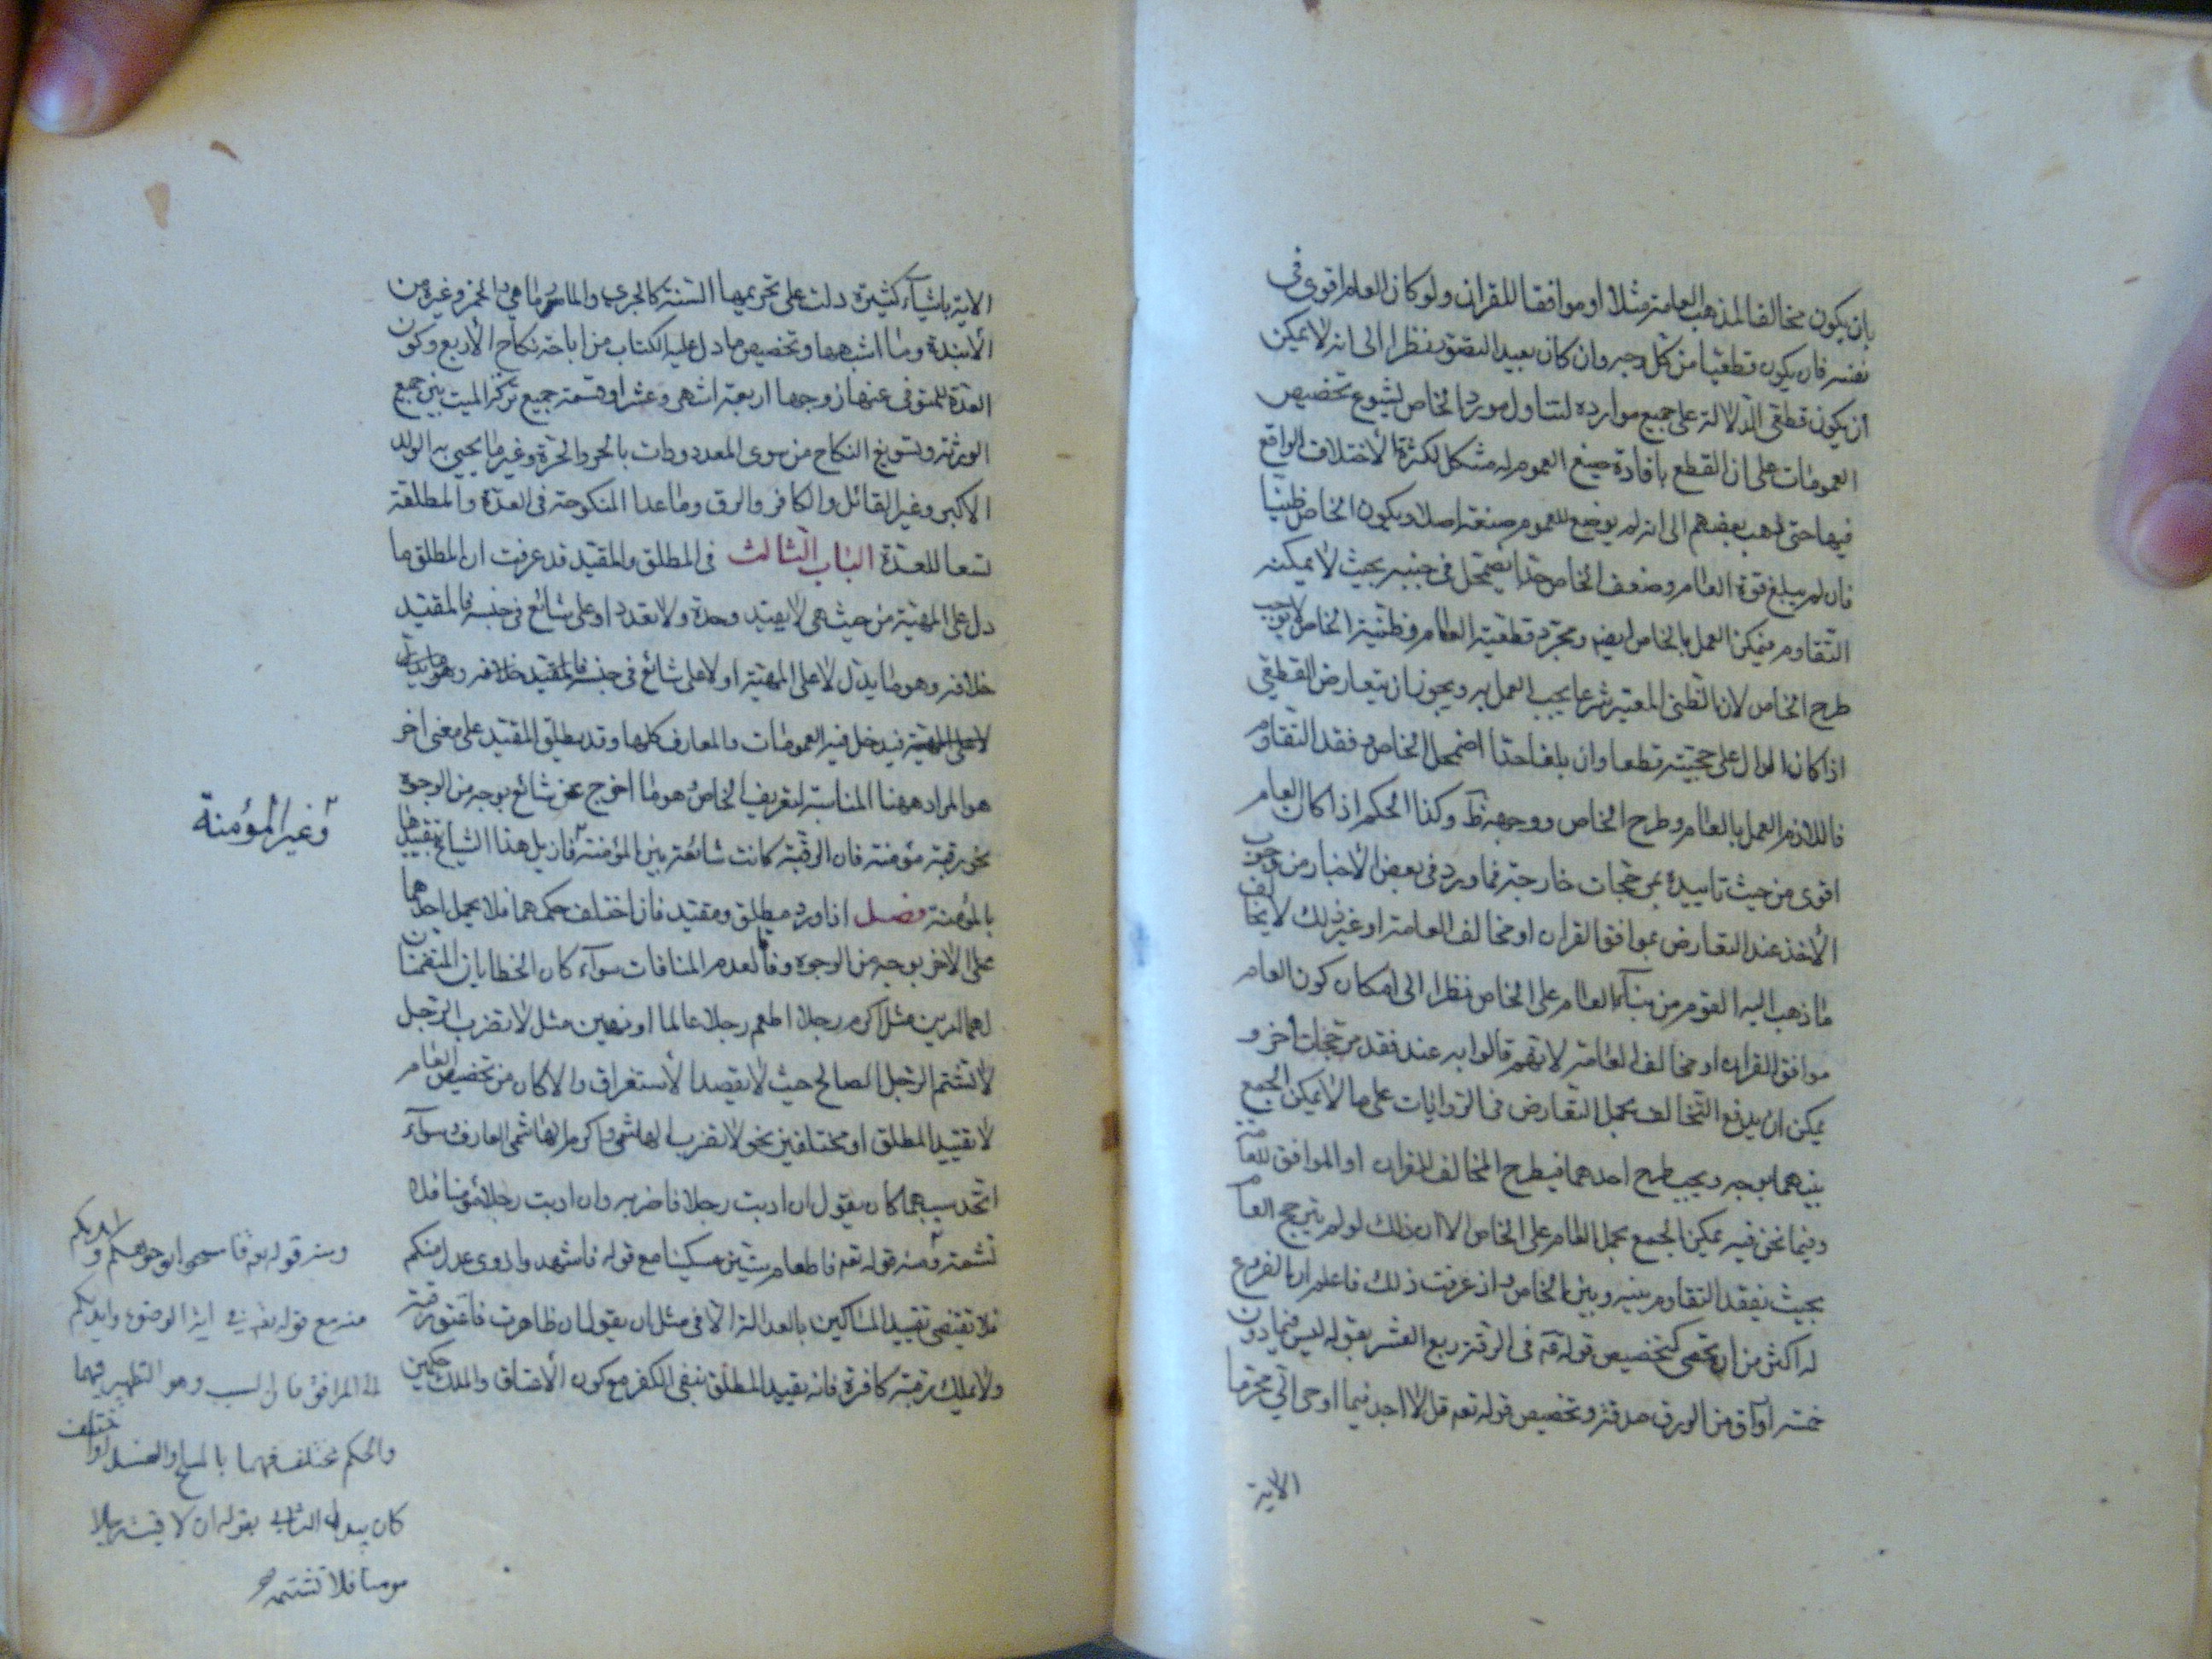 بان يكون مخالفا لمذهب العامة مثلا او موافقا للقران ولو كان العام اقوى فى
نفسه فان يكون قطعيا من كل وجه وان كان بعيد التحقق نظرا الى انه لا يمكن
ان يكون قطعى الدلالة على جميع موارده لتناول مورد الخاص لشيوع تخصيص
العمومات على ان القطع بافادة صيغ العموم له مشكل لكثرة الاختلاف الواقع
فيها حتى ذهب بعضهم الى انه لم يوضع للعموم صيغة اصلا ويكون الخاص ظنيا
فان لم يبلغ قوة العام وضعف الخاص حدا يضمحل فى جنبه بحيث لا يمكنه
التقاوم فيمكن العمل بالخاص ايضه ومجرد قطعية العام وظنية الخاص لا يوجب
طرح الخاص لان الظنى المعتبر شرعا يجب العمل به ويجوز ان يتعارض القطعي
اذا كان الدال على حجيته قطعا وان بلغا حدا اضمحل الخاص وفقد التقاوم
فاللازم العمل بالعام وطرح الخاص ووجهه ظ وكذا الحكم اذا كان العام
اقوى من حيث تاييده بمرجحات خارجة فما ورد فى بعض الاخبار من وجوب
الأخذ عند التعارض بموافق القران او مخالف العامة او غير ذلك لا يخالف
ما ذهب اليه القوم من بناء العام على الخاص نظرا الى امكان كون العام
موافق القران او مخالف العامة لانهم قالوا به عند فقد مرجحات أخر و
يمكن ان يدفع التخالف بحمل التعارض فى الروايات على ما لا يمكن الجمع
بينهما بوجه ويجب طرح احدهما فيطرح المخالف للقران او الموافق للعامة
وفيما نحن فيه يمكن الجمع بحمل العام على الخاص الا ان ذلك لو لم يترجح العام
بحيث يفقد التقاوم بينه وبين الخاص واذ عرفت ذلك فاعلم ان الفروع
له اكثر من ان تحصى كتخصيص قوله فى الرقة ربع العشر بقوله ليس فيما دون
خمسة اواق من الورق صدقة وتخصيص قوله تعم قل لا اجد فيما اوحى الي محرما
الاية
الاية باشياء كثيرة دلت على تحريمها السنة كالجري والمار من
الأنبذة وما اشبهها وتخصيص ما دل عليه الكتاب من اباحة نكاح الأربع وكون
العدة للمتوفى عنها زوجها اربعة اشهر وعشرا وقسمة جميع تركة الميت بين جميع
الورثة وتسويغ النكاح من سوى المعدودات بالحر والحرة وغير ما يحبى به الولد
الاكبر وغير القاتل والكافر والرق وما عدا المنكوحة فى العدة والمطلقة
تسعا للعدة الباب الثالث فى المطلق والمقيد قد عرفت ان المطلق ما
دل على المهية من حيث هى لا بقيد وحدة ولا تعدد او على شائع فى جنسه فالمقيد
خلافه وهو ما يدل لا على المهية او لا على شائع فى جنسه فالمقيد خلافه وهو ما يدل
لا على المهية فيدخل فيه العمومات والمعارف كلها وقد يطلق المقيد على معنى اخر
هو المراد ههنا المناسبة لتعريف الخاص هو ما اخرج عن شائع بوجه من الوجوه
نحو رقبة مؤمنة فان الرقبة كانت شائعة بين المؤمنة فازيل هذا الشياع بتقييدها
بالمؤمنة فصل اذا ورد مطلق ومقيد فان اختلف حكمهما فلا يحمل احدهما
على الاخر بوجه من الوجوه وفاقا لعدم المنافات سواء كان الخطابان المتضمنان
لهما امرين مثل اكرم رجلا اطعم رجلا عالما او نهيين مثل لا تضرب الرجل
لا تشتم الرجل الصالح حيث لا يقصد الأستغراق والا كان من تخصيص العام
لا تقييد المطلق او مختلفين نحو لا تضرب الهاشمى واكرم الهاشمى العارف سواء
اتحد سببهما كان يقول ان اديت رجلا فاضربه وان اديت رجلا مؤمنا فلا
تشمته ومنه قوله تعم فاطعام ستين مسكينا مع قوله فاشهدوا ذوى عدل منكم
فلا تقتضى تقييد المساكين بالعدالة الا فى مثل ان يقول ان ظاهرت فاعتق رقبة
ولا تملك رقبة كافرة فانه يقيد المطلق بنفى الكفر مع كون الأعتاق والملك حكمين
وغير المؤمنة
ومنه قوله تعم فامسحوا بوجوهكم وايديكم
منه مع قوله تعم فى اية الوضوء وايديكم
الى المرافق فان السبب وهو التطهير فيهما
والحكم مختلف فيهما بالمسح والغسل او اختلف
كان يبدل الثانى بقوله ان لاقيت رجلا
مومنا فلا تشتمه